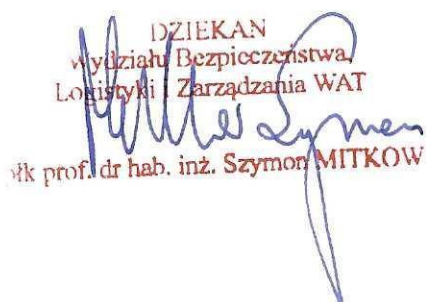 DZIEKAN
Wydziału Bezpieczeństwa,
Logistyki i Zarządzania WAT
płk prof. dr hab. inż. Szymon MITKOW